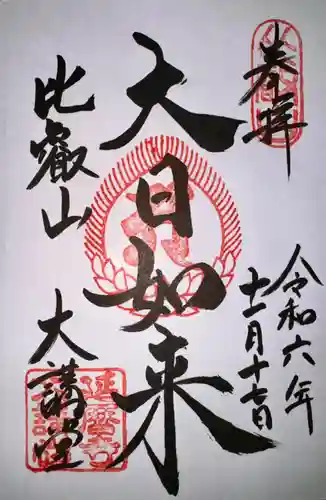 奉拝
令和六年
十一月十七日
大日如来
比叡山
大講堂